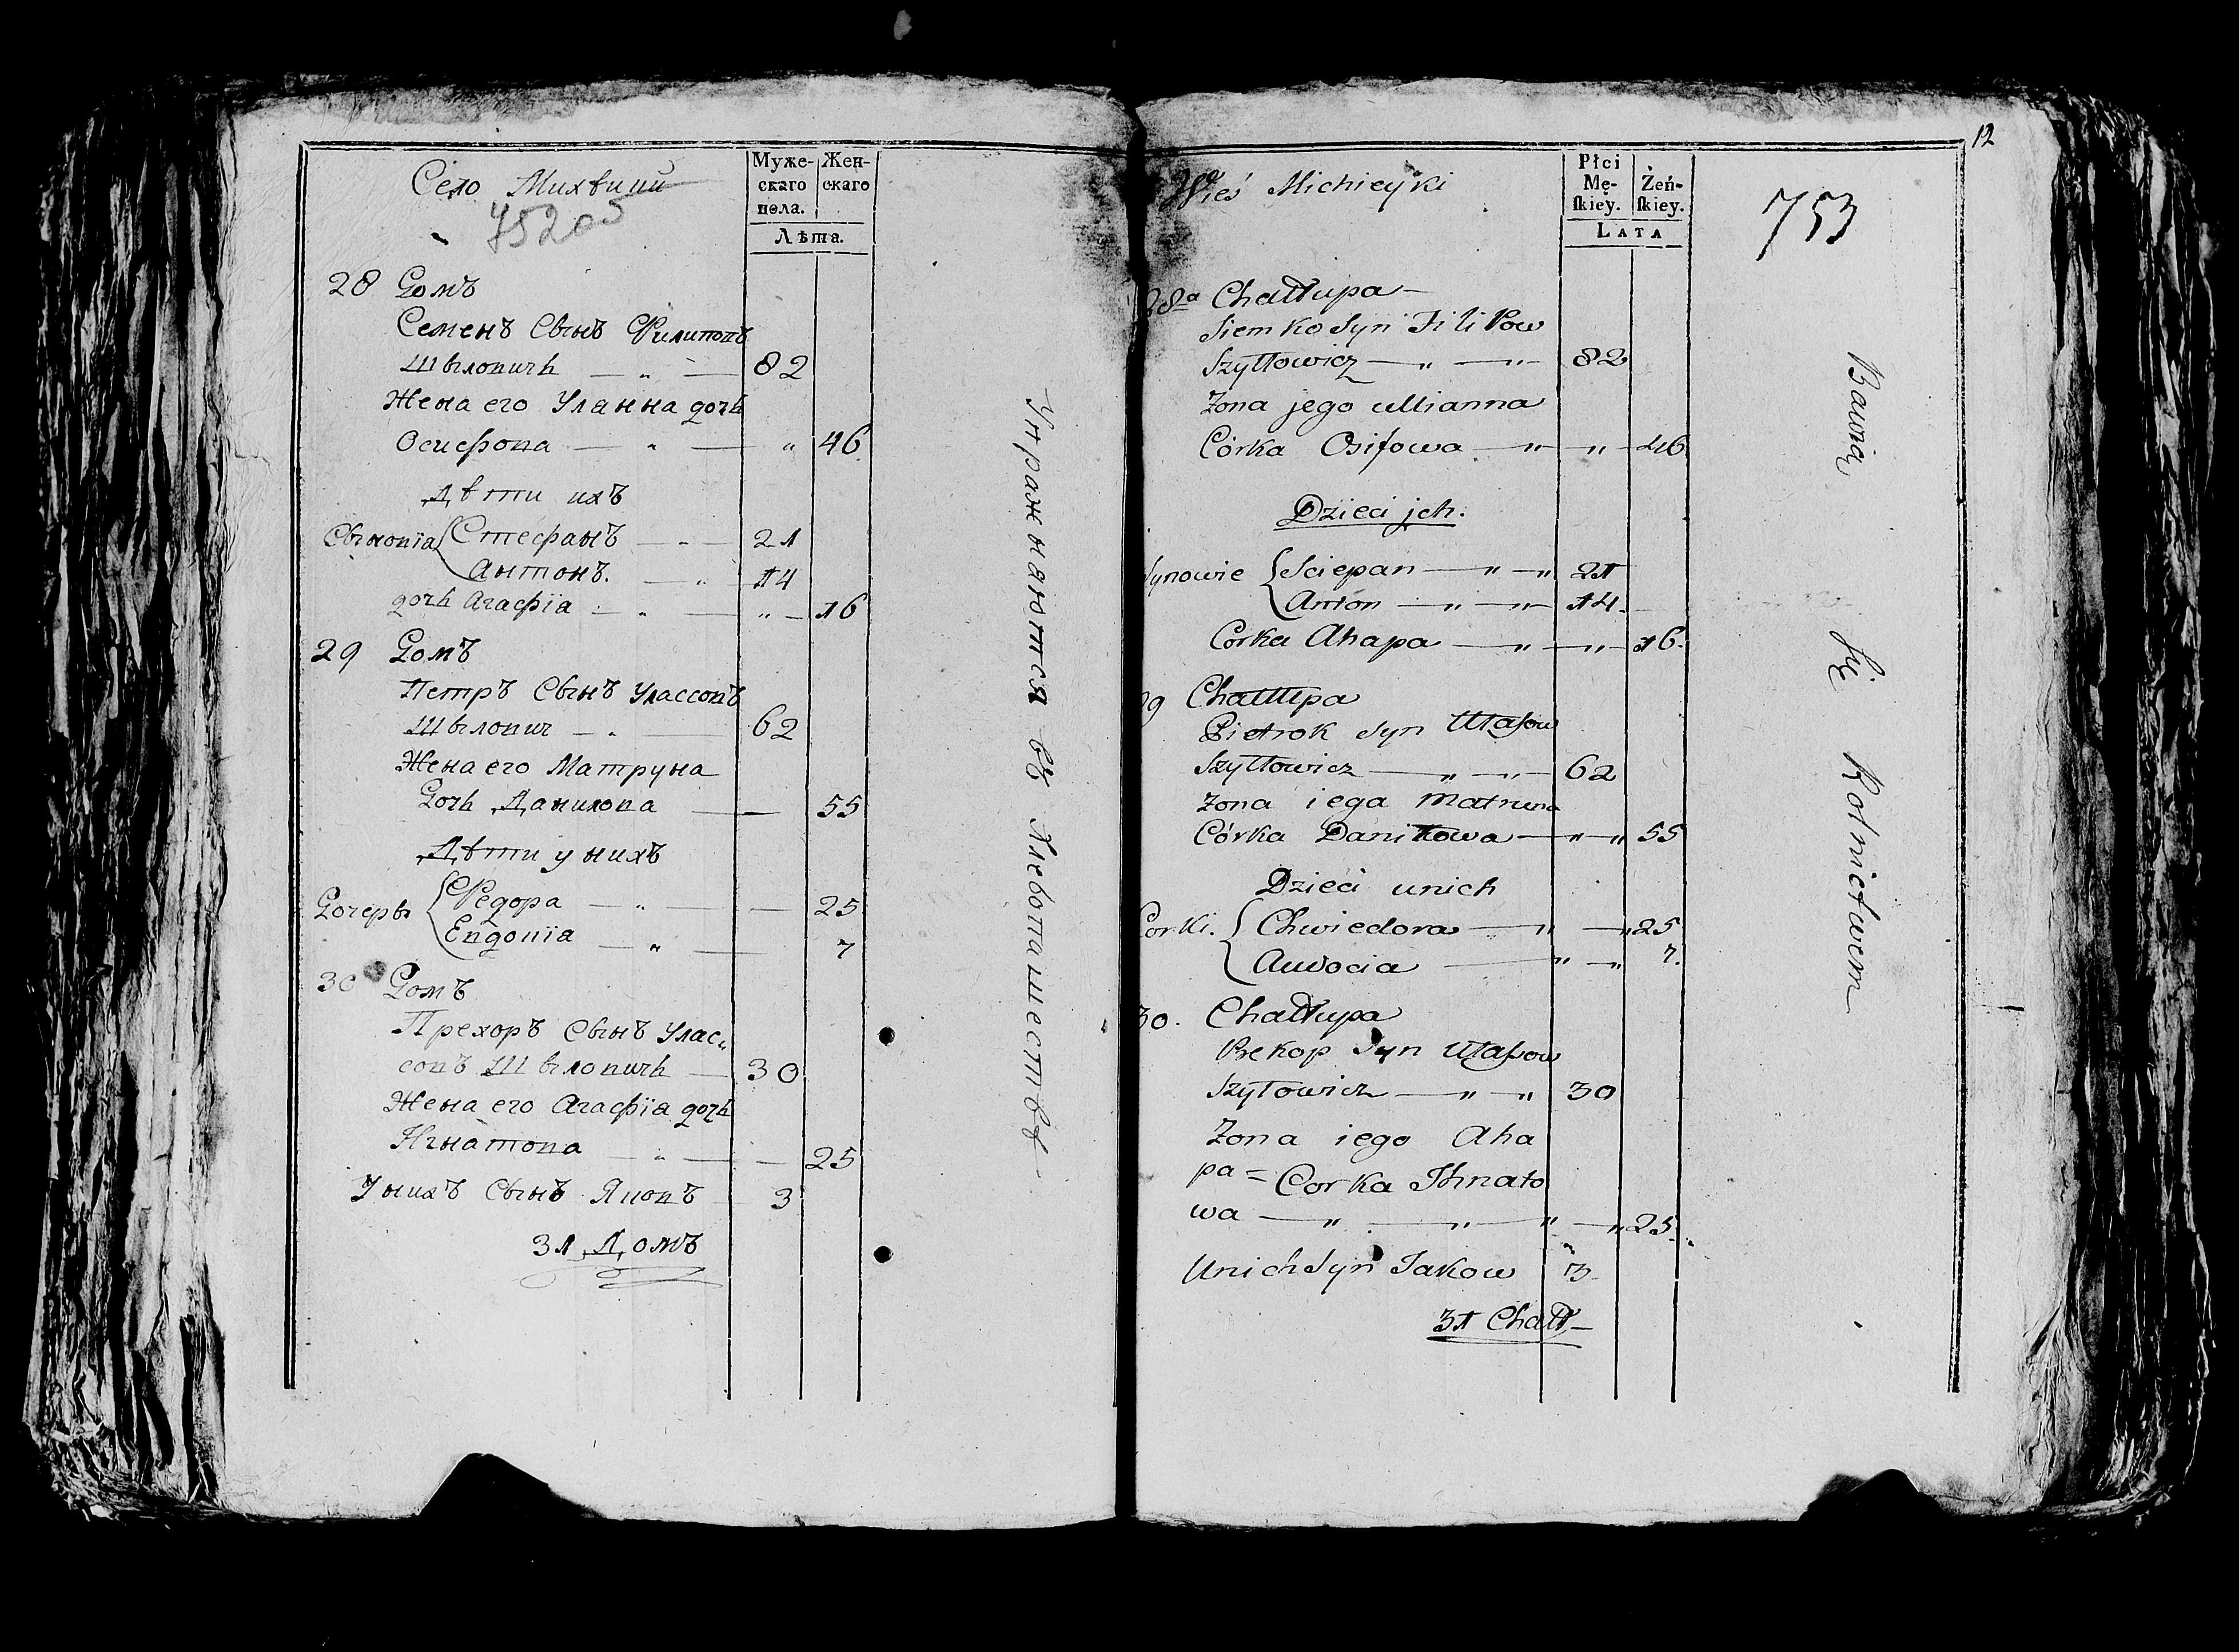 Село Михѣици
752об
Муже-
скаго
пола.
Жен-
скаго
Лѣта.
28 Домъ
Семенъ Сынъ Филиповъ
Шыловичь — „ — 82
Жена его Уланна дочь
Осифова — „ — „ 46
Дѣти ихъ
Сыновїа { Стефанъ — „ — 21
Антонъ. — „ 14
дочь Агафїа — „ — „ — 16
29 Домъ
Петръ Сынъ Улассовъ
Шылович — „ — 62
Жена его Матруна
Дочь Данилова — — 55
Дѣти у нихъ
Дочеры { Федора — „ — — 25
Евдовїа — „ — 7
30 Домъ
Прехоръ Сынъ Улас„
совъ Шыловичь — 30
Жена его Агафїа дочь
Игнатова — „ — — 25
У нихъ Сынъ Яковъ 3
31 Домъ
Упражняются въ Хлебопашествѣ
12
Wieś Michieyki
Płci
Mę-
ſkiey.
Żeń-
ſkiey.
LATA
753
28a Chałłupa —
Siemko Syn Filipow
Szyłłowicz — „ — „ — 82
Zona jego Ullianna
Córka Osifowa — „ — „ — 46
Dzieci jch.
Synowie { Sciepan — „ — „ 21
Anton — „ — „ — 14.
Corka Ahapa — „ — „ — 16.
29 Chałłupa
Pietrok Syn Ułasow
Szyłłowicz — „ — „ — 62
Zona iega Matruna
Córka Daniłłowa — „ — „ 55
Dzieci unich
Corki. { Chwiedora — „ — „ 25
Audocia — „ — „ 7.
30. Chałłupa
Prekop Syn Ułasow
Szyłowicz — „ — „ 30
Zona iego Aha
pa = Corka Ihnato
wa — „ — „ — „ — „ 25.
Unich Syn Jakow 3
31 Chałł —
Bawią się Rolnictwem